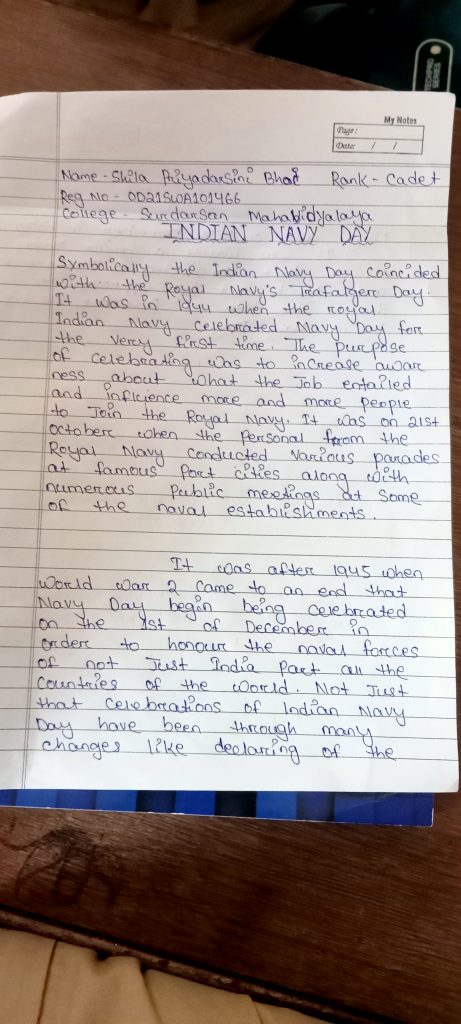 My Notes
Page:
Date: / /
Name - Shila Priyadarsini Bhoi Rank - Cadet
Reg No - OD21SWA101466
College - Surdarsan Mahavidyalaya
INDIAN NAVY DAY
Symbolically the Indian Navy Day coincided
with the Royal Navy's Trafalgere Day.
It was in 1944 when the royal
Indian Navy celebrated Navy Day fore
the very first time. The purpose
of celebrating was to increase awar
ness about what the Job entailed
and inflicience more and more people
to Join the Royal Navy. It was on 21st
octobere when the personal from the
Royal Navy conducted various parades
at famous Port cities along with
numerous Public meetings at some
of the naval establishments.
It was after 1945 when
World war 2 came to an end that
Navy Day begin being celebrated
on the 1st of Decembere in
ordere to honour the naval forces
of not Just India Part all the
Countries of the world. Not Just
that celebrations of Indian Navy
Day have been through many
changes like declaring of the